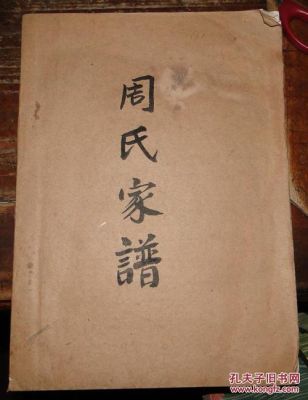 周氏家譜
孔夫子旧书网
www.kongfz.com